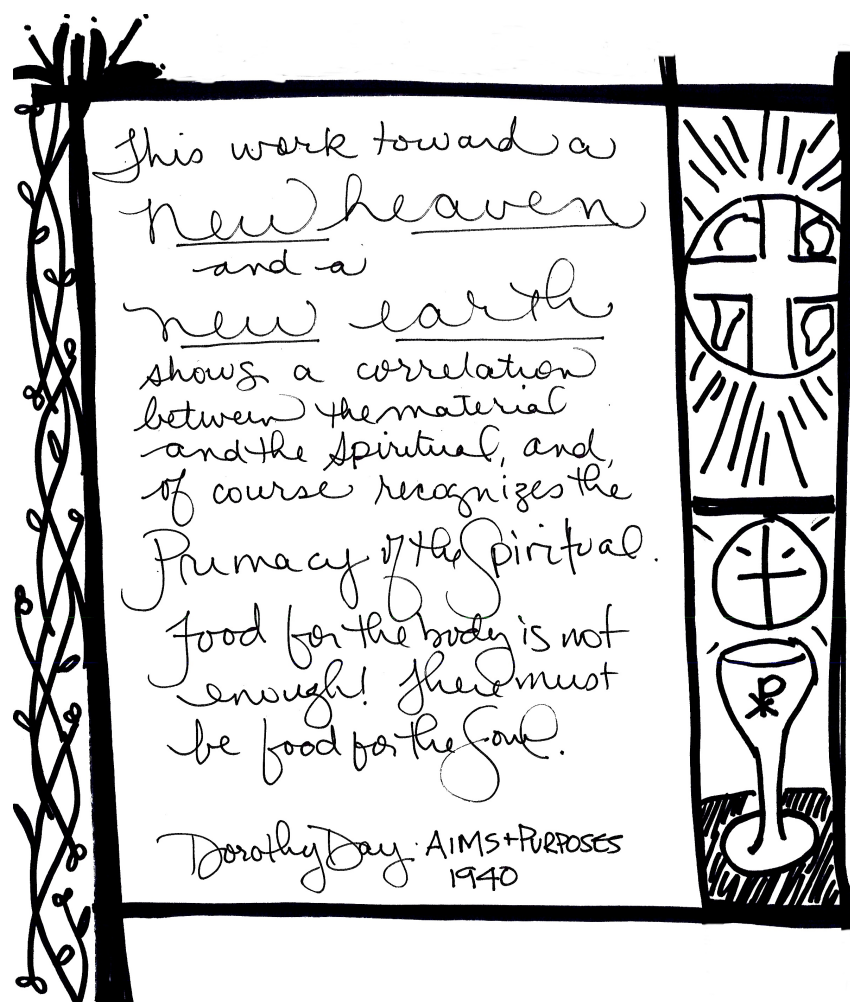 This work toward a
new heaven
and a
new earth
shows a correlation
between the material
and the spiritual, and,
of course recognizes the
Primacy of the Spiritual.
Food for the body is not
enough! There must
be food for the Soul.
Dorothy Day · AIMS + PURPOSES
1940